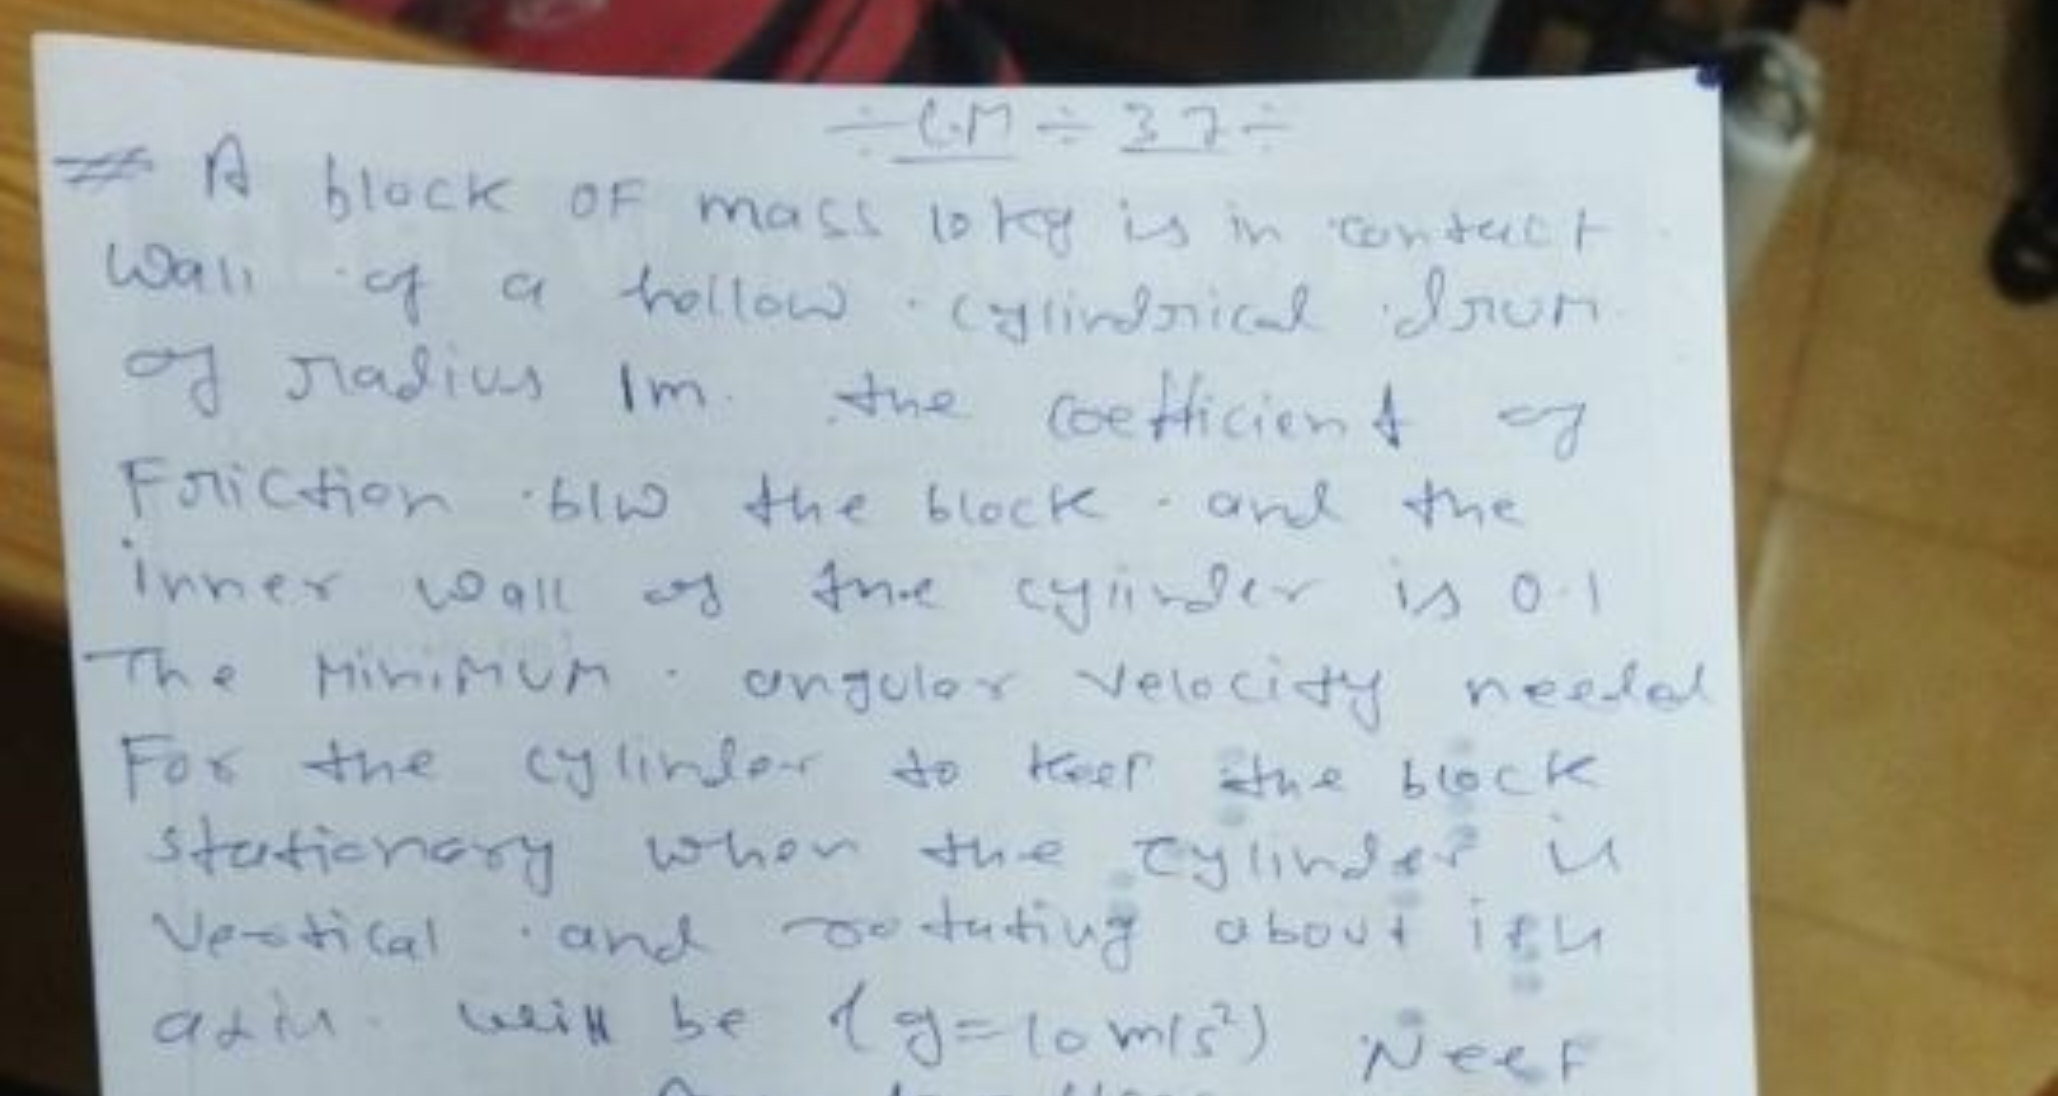 ÷ C.M ÷ 37 ÷
# A block OF mass 10 kg is in contact
Wall of a hollow cylindrical drum
of radius 1m. the coefficient of
Friction b/w the block and the
inner wall of the cylinder is 0.1
The Minimum angular velocity needed
For the cylinder to keep the block
stationary when the cylinder is
Vertical and rotating about its
axis will be (g=10 m/s²) Neet